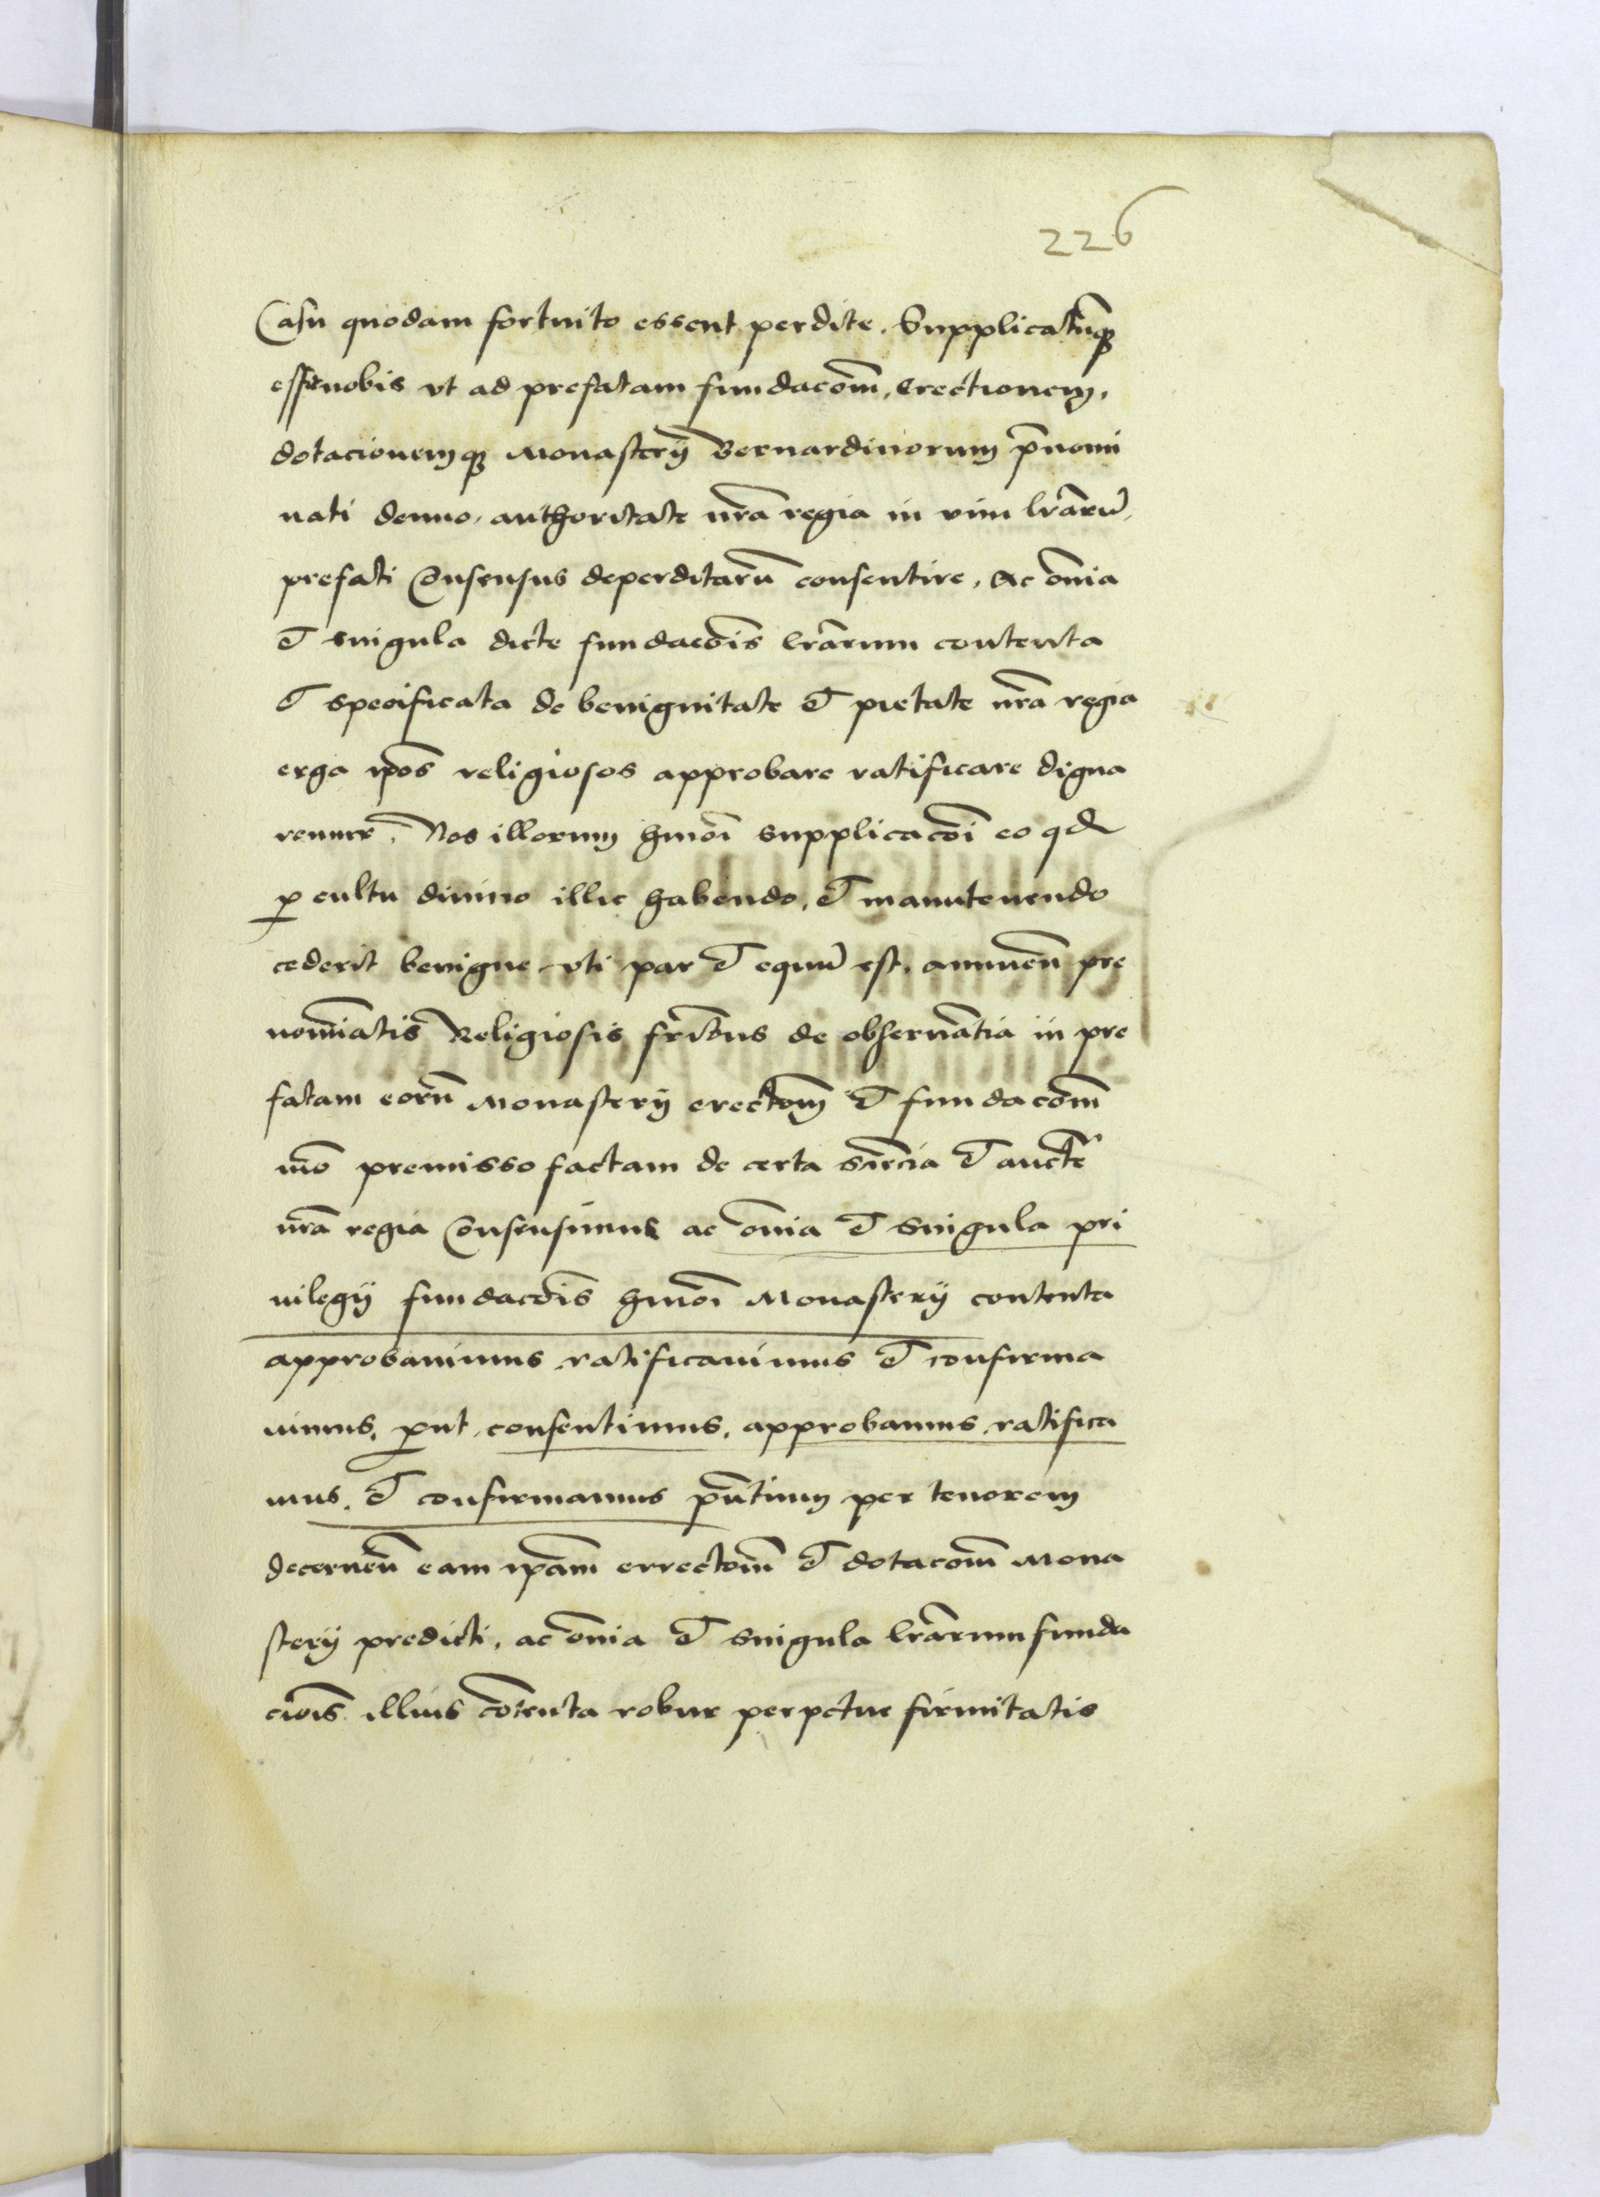 226
Casu quodam fortuito essent perdite. Supplicatūq̄
esset nobis vt ad prefatam fundacōm, Erectionem,
dotacionemq̄ Monasterij Bernardinorum p̄nomi
nati denuo, authoritate nrā regia in vim lrārū,
prefati Consensus deperditarū consentire, Ac om̄ia
et singula dicte fundacōis lrārum contenta
et specificata de benignitate et pietate nrā regia
erga ip̄os religiosos approbare ratificare digna
remur. Nos illorum hmōi supplicacōi eo qd
p cultu diuino illic habendo, et manutenendo
cederit benigne vti par et equū est, annuen̄ pre
nomīatis Religiosis frībus de obseruātia in pre
fatam eorū Monasterij erectōm et fundacōm
mō premisso factam de certa scīēcia et aucte
nrā regia Consensimus ac om̄ia et singula pri
uilegij fundacōis hmōi Monasterij contenta
approbauimus ratificauimus et confirma
uimus, put consentimus, approbamus ratifica
mus, et confirmamus pn̄tium per tenorem
decernen̄ eam ip̄am errectōm et dotacōm Mona
sterij predicti, ac om̄ia et singula lrārum funda
ciōis illius cōtenta robur perpetue firmitatis